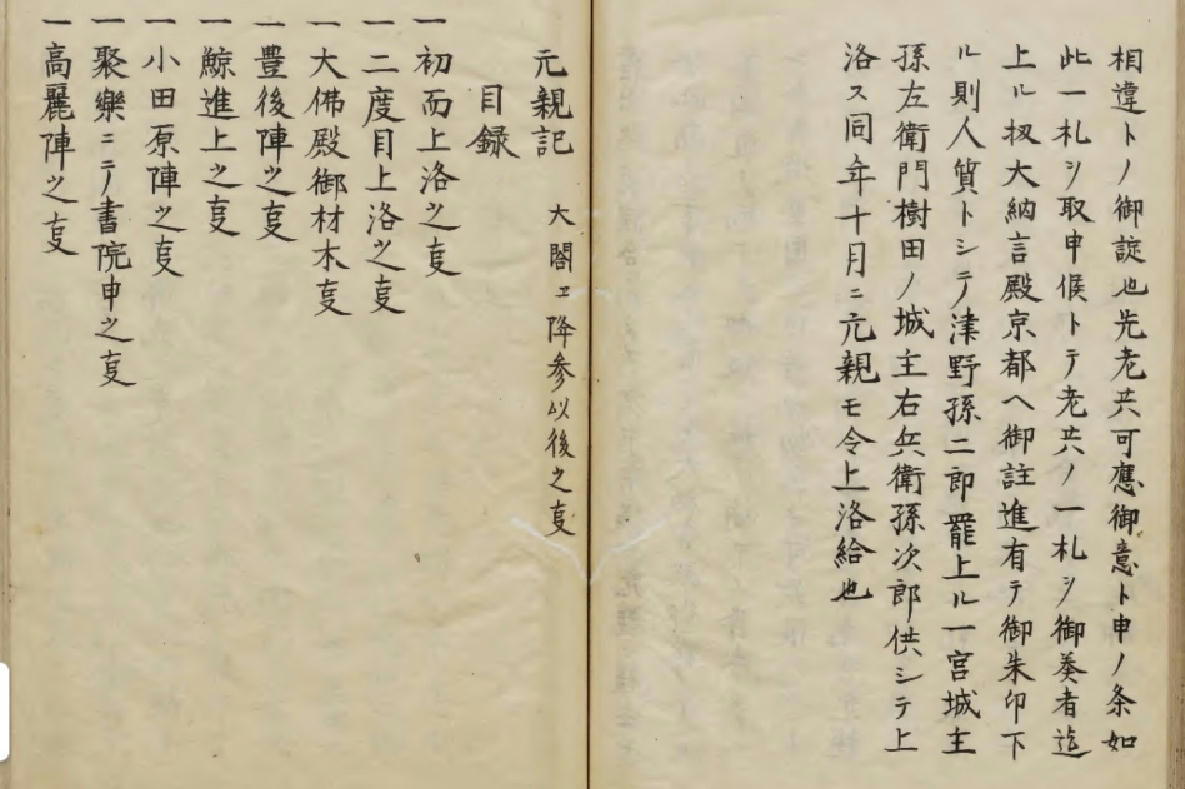 相違トノ御諚也先老共可應御意ト申ノ条如
此一札ヲ取申候トテ老共ノ一札ヲ御奏者迄
上ル扨大納言殿京都ヘ御註進有テ御朱印下
ル則人質トシテ津野孫二郎罷上ル一宮城主
孫左衛門樹田ノ城主右兵衛孫次郎供シテ上
洛ス同年十月ニ元親モ令上洛給也
元親記 大閤エ降参以後之叓
目録
一初而上洛之叓
一二度目上洛之叓
一大佛殿御材木叓
一豊後陣之叓
一鯨進上之叓
一小田原陣之叓
一聚樂ニテ書院申之叓
一高麗陣之叓